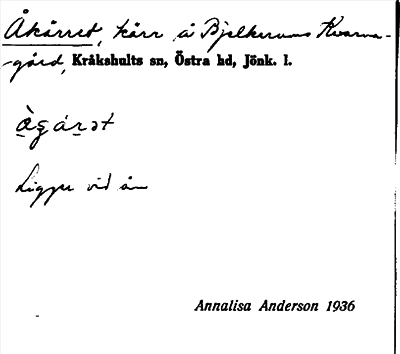 Åkärret, kärr å Bjelkerums Kvarn-
gård, Kråkshults sn, Östra hd, Jönk. l.
Ligger vid ån
Annalisa Anderson 1936